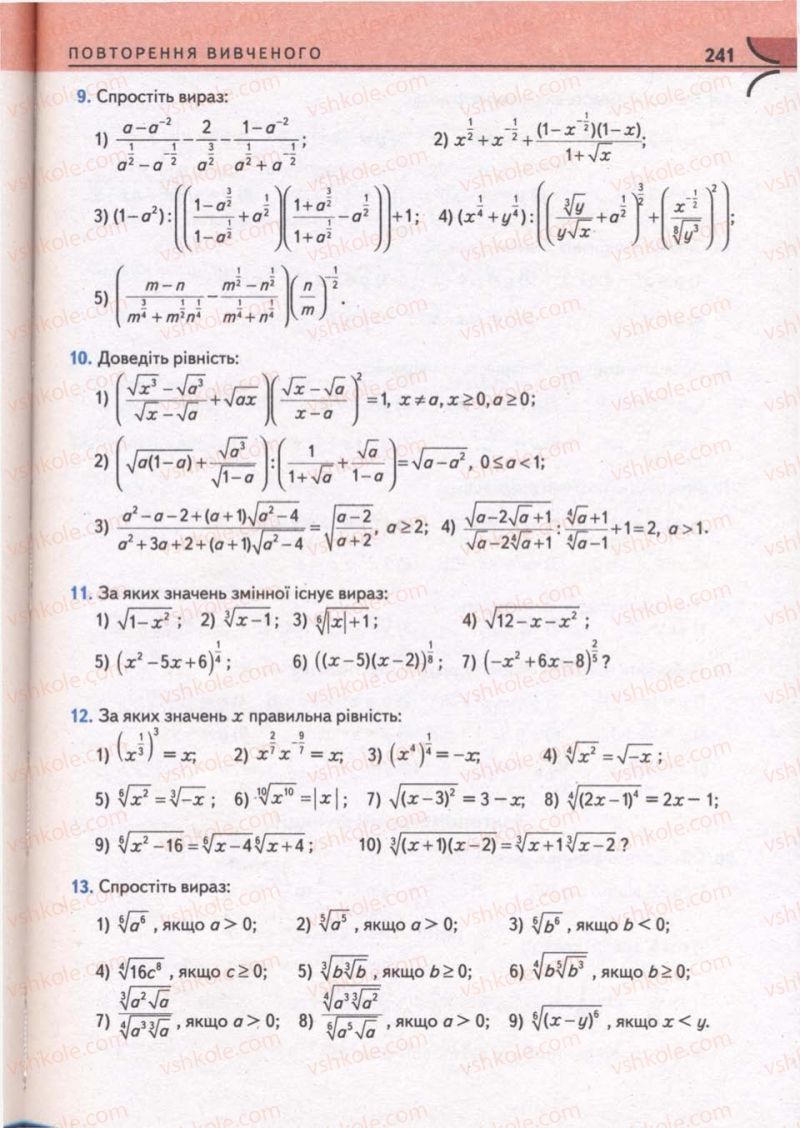 ПОВТОРЕННЯ ВИВЧЕНОГО 241
9. Спростіть вираз:
1) \frac{a-a^{-2}}{a^{\frac{1}{2}}-a^{-\frac{1}{2}}}-\frac{2}{a^{\frac{3}{2}}}-\frac{1-a^{-2}}{a^{\frac{1}{2}}+a^{-\frac{1}{2}}}; 2) x^{\frac{1}{2}}+x^{-\frac{1}{2}}+\frac{(1-x^{-\frac{1}{2}})(1-x)}{1+\sqrt{x}};
3) (1-a^2):\left(\left(\frac{1-a^{\frac{3}{2}}}{1-a^{\frac{1}{2}}}+a^{\frac{1}{2}}\right)\left(\frac{1+a^{\frac{3}{2}}}{1+a^{\frac{1}{2}}}-a^{\frac{1}{2}}\right)\right)+1; 4) (x^{\frac{1}{4}}+y^{\frac{1}{4}}):\left(\left(\frac{\sqrt[3]{y}}{y\sqrt{x}}+a^{\frac{1}{2}}\right)^{\frac{3}{2}}+\left(\frac{x^{-\frac{1}{2}}}{\sqrt[8]{y^3}}\right)^2\right);
5) \left(\frac{m-n}{m^{\frac{3}{4}}+m^{\frac{1}{2}}n^{\frac{1}{4}}}-\frac{m^{\frac{1}{2}}-n^{\frac{1}{2}}}{m^{\frac{1}{4}}+n^{\frac{1}{4}}}\right)\left(\frac{n}{m}\right)^{-\frac{1}{2}}.
10. Доведіть рівність:
1) \left(\frac{\sqrt{x^3}-\sqrt{a^3}}{\sqrt{x}-\sqrt{a}}+\sqrt{ax}\right)\left(\frac{\sqrt{x}-\sqrt{a}}{x-a}\right)^2=1, x≠a, x≥0, a≥0;
2) \left(\sqrt{a(1-a)}+\frac{\sqrt{a^3}}{\sqrt{1-a}}\right):\left(\frac{1}{1+\sqrt{a}}+\frac{\sqrt{a}}{1-a}\right)=\sqrt{a-a^2}, 0≤a<1;
3) \frac{a^2-a-2+(a+1)\sqrt{a^2-4}}{a^2+3a+2+(a+1)\sqrt{a^2-4}}=\sqrt{\frac{a-2}{a+2}}, a≥2; 4) \frac{\sqrt{a-2\sqrt{a}+1}}{\sqrt{a-2\sqrt[4]{a}+1}}:\frac{\sqrt[4]{a}+1}{\sqrt[4]{a}-1}+1=2, a>1.
11. За яких значень змінної існує вираз:
1) \sqrt{1-x^2}; 2) \sqrt[3]{x-1}; 3) \sqrt[6]{|x|+1}; 4) \sqrt{12-x-x^2};
5) (x^2-5x+6)^{\frac{1}{4}}; 6) ((x-5)(x-2))^{\frac{1}{8}}; 7) (-x^2+6x-8)^{\frac{2}{5}}?
12. За яких значень x правильна рівність:
1) \left(x^{\frac{1}{3}}\right)^3=x; 2) x^{\frac{2}{7}}x^{-\frac{9}{7}}=x; 3) (x^4)^{\frac{1}{4}}=-x; 4) \sqrt[4]{x^2}=\sqrt{-x};
5) \sqrt[6]{x^2}=\sqrt[3]{-x}; 6) \sqrt[10]{x^{10}}=|x|; 7) \sqrt{(x-3)^2}=3-x; 8) \sqrt[4]{(2x-1)^4}=2x-1;
9) \sqrt[6]{x^2-16}=\sqrt[6]{x-4}\sqrt[6]{x+4}; 10) \sqrt[3]{(x+1)(x-2)}=\sqrt[3]{x+1}\sqrt[3]{x-2}?
13. Спростіть вираз:
1) \sqrt[6]{a^6}, якщо a>0; 2) \sqrt[5]{a^5}, якщо a>0; 3) \sqrt[6]{b^6}, якщо b<0;
4) \sqrt[4]{16c^8}, якщо c≥0; 5) \sqrt[3]{b\sqrt[3]{b}}, якщо b≥0; 6) \sqrt[4]{b\sqrt[5]{b^3}}, якщо b≥0;
7) \frac{\sqrt[3]{a^2\sqrt{a}}}{\sqrt[4]{a^3\sqrt[3]{a}}}, якщо a>0; 8) \frac{\sqrt[4]{a^3\sqrt[3]{a^2}}}{\sqrt[6]{a^5\sqrt{a}}}, якщо a>0; 9) \sqrt[6]{(x-y)^6}, якщо x<y.